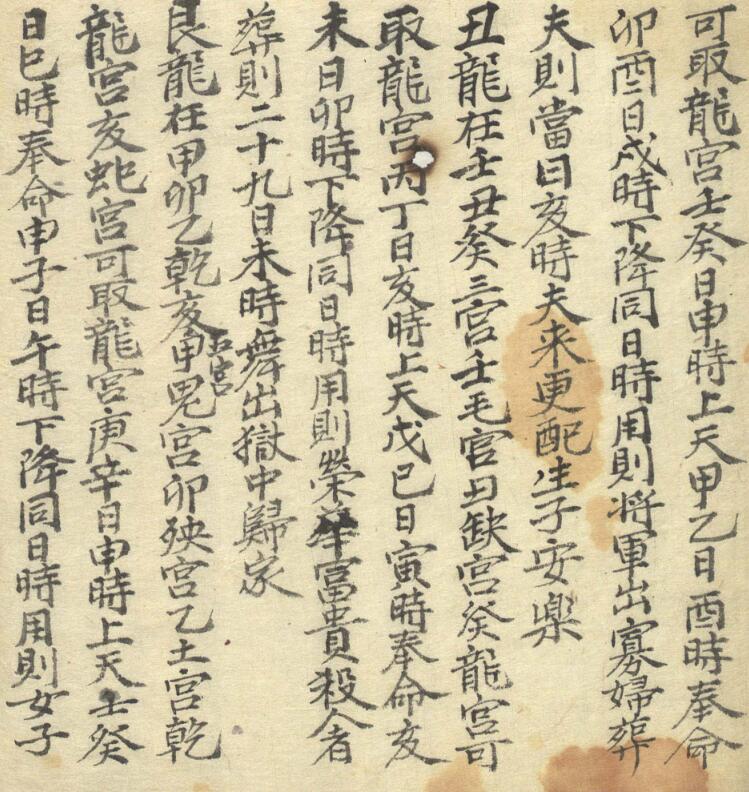 可取龍宮壬癸日申時上天甲乙日酉時奉命
卯酉二日戌時下降同日時用則将軍出寡婦葬
夫則當日亥時夫来更配生子安楽
丑龍在壬丑癸三宮壬毛官丑缺宮癸龍宮可
取龍宮丙丁日亥時上天戊巳日寅時奉命亥
未日卯時下降同日時用則榮華富貴殺人者
葬則二十九日未時舞出獄中歸家
艮龍在甲卯乙乾亥五宮甲鬼宮卯殃宮乙土宮乾
龍宮亥蛇宮可取龍宮庚辛日申時上天壬癸
日巳時奉命申子日午時下降同日時用則女子